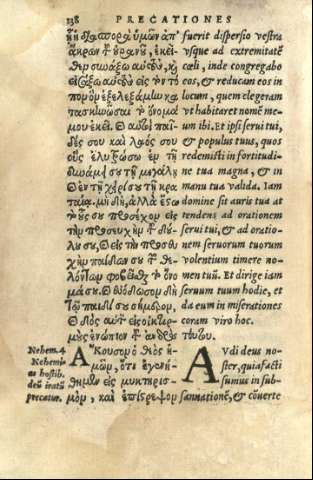 138 PRECATIONES
ᾖ ἡ διασπορὰ ὑμῶν ἀπ'
ἄκρων τ ὀρανῦ, ἐκεῖ-
θεν συνάξω αὐτοὺς, καὶ
εἰσάξω αὐτοὺς εἰς τὸν τό
πον ὃν ἐξελεξάμlω κα
τασκlωῶσαι τὸ ὄνομά
μου ἐκεῖ. καὶ αὐτοὶ παῖ-
δές σου καὶ λαός σου
οὓς ἐλυτρώσω ἐν τῇ
δυνάμει σου τῇ μεγάλῃ
καὶ ἐν τῇ χειρί σου τῇ κρα
ταιᾷ. μὴ δὴ, ἀλλὰ ἔστω
τὸ οὖς σου προσέχον εἰς
τὴν προσευχὴν τοῦ δού-
λου σου, καὶ εἰς τὴν προσευ
χὴν παίδων σου τῶν θε-
λόντων φοβεῖσθαι τὸ ὄνο
μά σου. καὶ εὐόδωσον δὴ
τῷ παιδί σου σήμερον,
καὶ δὸς αὐτὸν εἰς οἰκτιρ-
μοὺς ἐνώπιον τοῦ ἀνδρὸς τούτου.
fuerit dispersio vestra
vsque ad extremitatē
cœli, inde congregabo
eos, & reducam eos in
locum, quem elegeram
vt habitaret nomē me-
um ibi. Et ipsi serui tui,
& populus tuus, quos
redemisti in fortitudi-
ne tua magna, & in
manu tua valida. Iam
domine sit auris tua at
tendens ad orationem
serui tui, & ad oratio-
nem seruorum tuorum
volentium timere no-
men tuū. Et dirige iam
seruum tuum hodie, et
da eum in miserationes
coram viro hoc.
Nehem. 4
Nehemi-
as hostib.
deū iratū
precatur.
ΑΚουσον ὁ θεὸς ἡ-
μῶν, ὅτι ἐγενή-
θημεν εἰς μυκτηρισ-
μὸν, καὶ ἐπίστρεψον
AVdi deus no-
ster, quia facti
sumus in sub-
sannationē, & cōuerte